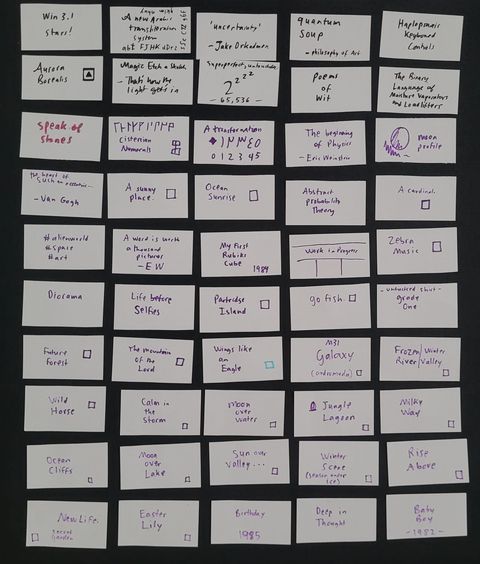 Win 3.1
Stars!
A new Arabic
transliteration
System
'uncertainty'
- Jake Orkadmen
quantum
Soup
- philosophy of Art
Haplopraxis
Keyboard
Controls
Aurora
Borealis
Magic Etch a Sketch
- That's how the
light gets in
2²²²
- 65,536 -
Poems
of
Wit
The Binary
Language of
Moisture Vaporators
and Loadlifters
Speak of
Stones
Cistercian
Numerals
A transformation
0 1 2 3 4 5
The beginning
of Physics
- Eric Weinstein
moon
profile
the heart of
- Van Gogh
A sunny
place.
Ocean
Sunrise
Abstract
probability
Theory
A cardinal.
#alienworld
#space
#art
A word is worth
a thousand
pictures
- EW
My First
Rubiks
Cube 1984
Work in Progress
Zebra
Music
Diorama
Life before
Selfies
Partridge
Island
go fish
- untucked shirt -
grade
One
Future
Forest
The mountain
of the
Lord
Wings like
an
Eagle
M31
Galaxy
(andromeda)
Frozen/Winter
River/Valley
Wild
Horse
Calm in
the
Storm
Moon
over
Water
Jungle
Lagoon
Milky
Way
Ocean
Cliffs
Moon
Over
Lake
Sun over
Valley...
Winter
Scene
Rise
Above
New Life.
Secret
Garden
Easter
Lily
Birthday
1985
Deep in
Thought
Baby
Boy
- 1982 -